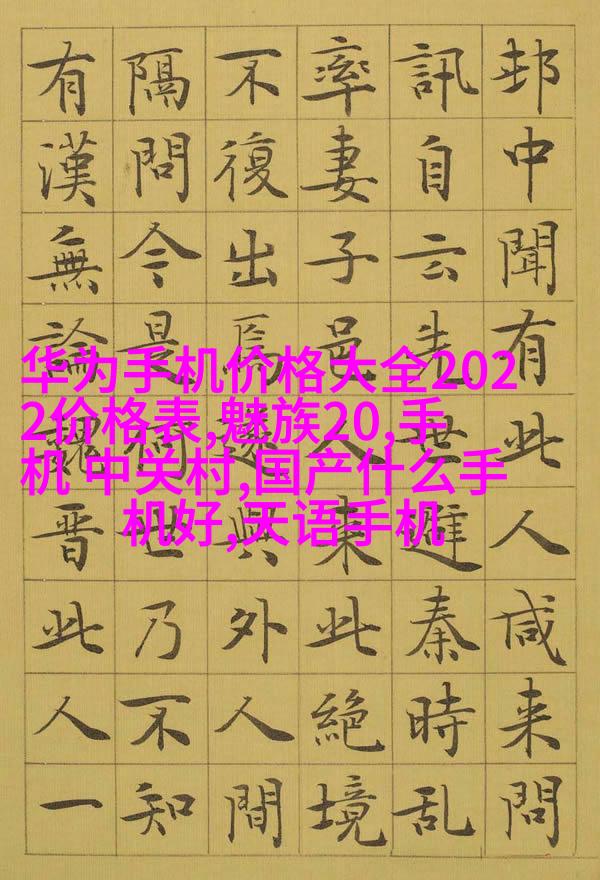 邨中聞有此人咸来問
訊自云先世避秦時乱
率妻子邑人来此絶境
不復出焉遂與外人間
隔問今是何世乃不知
有漢無論魏晋此人一
华为手机价格大全202
2价格表,魅族20,手
机 中关村,国产什么手
机好,天语手机